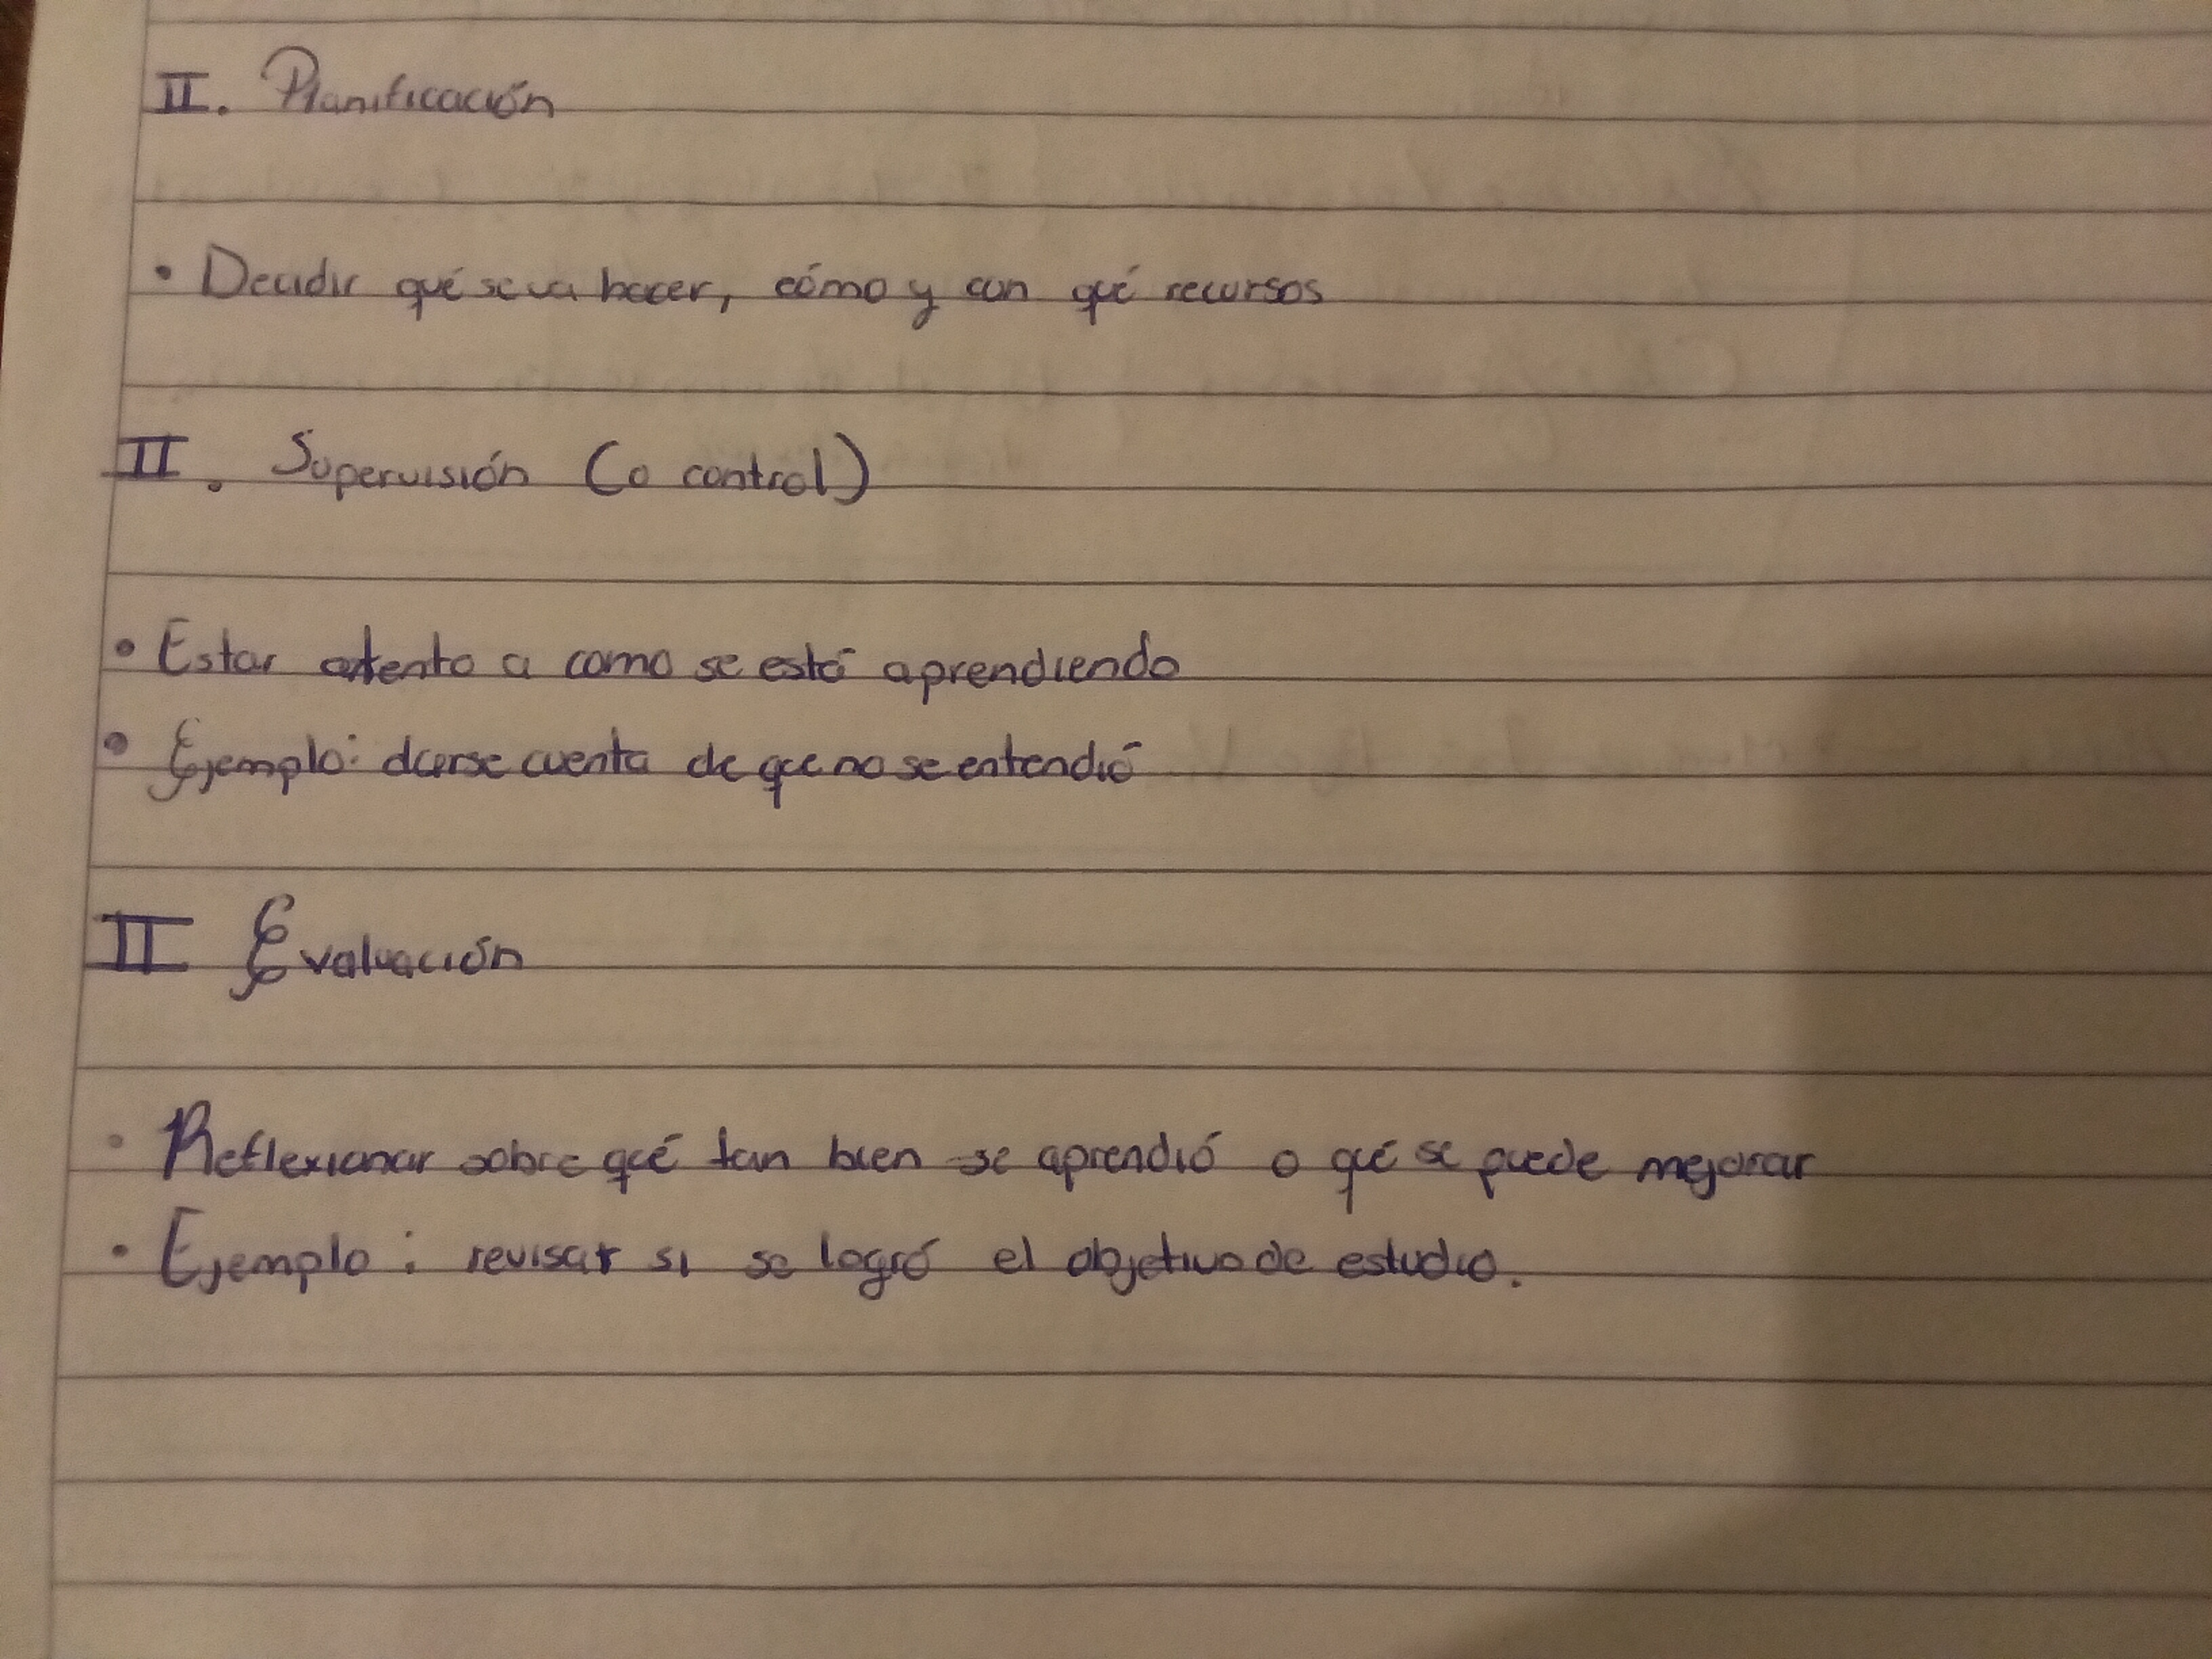 II. Planificación
• Decidir qué se va hacer, cómo y con qué recursos
II. Supervisión (o control)
• Estar atento a como se está aprendiendo
• Ejemplo: darse cuenta de que no se entendió
II Evaluación
• Reflexionar sobre qué tan bien se aprendió o qué se puede mejorar
• Ejemplo: revisar si se logró el objetivo de estudio.